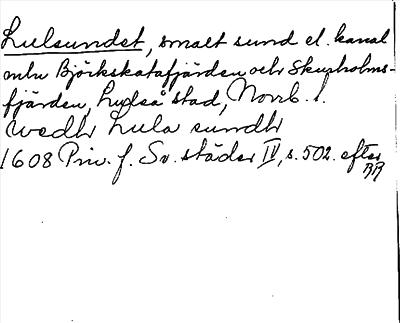 Lulsundet, smalt sund el. kanal
mln Björkskatafjärden och Skurholms-
fjärden, Luleå stad, Norrb. l.
wedh Lula sundh
1608 Priv. f. Sv. städer IV, s. 502. efter
RR